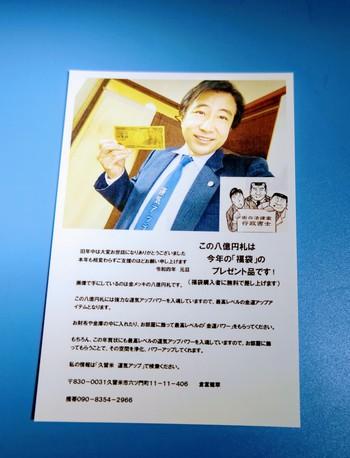 街の法律家
行政書士
この八億円札は
今年の「福袋」の
プレゼント品です！
（福袋購入者に無料で差し上げます）
旧年中は大変お世話になりありがとうございました
本年も相変わらずご支援のほどお願い申し上げます
令和四年　元旦
画像で手にしているのは金メッキの八億円札です。
この八億円札には強力な運気アップパワーを入魂していますので、最高レベルの金運アップア
イテムとなります。
お財布や金庫の中に入れたり、お部屋に飾って最高レベルの「金運パワー」をもらってください。
もちろん、この年賀状にも最高レベルの運気アップパワーを入魂していますので、お部屋に飾
ってもらうことで、その空間を浄化、パワーアップしてくれます。
私の情報は「久留米　運気アップ」で検索ください。
〒830-0031久留米市六ツ門町11-11-406
携帯090-8354-2966